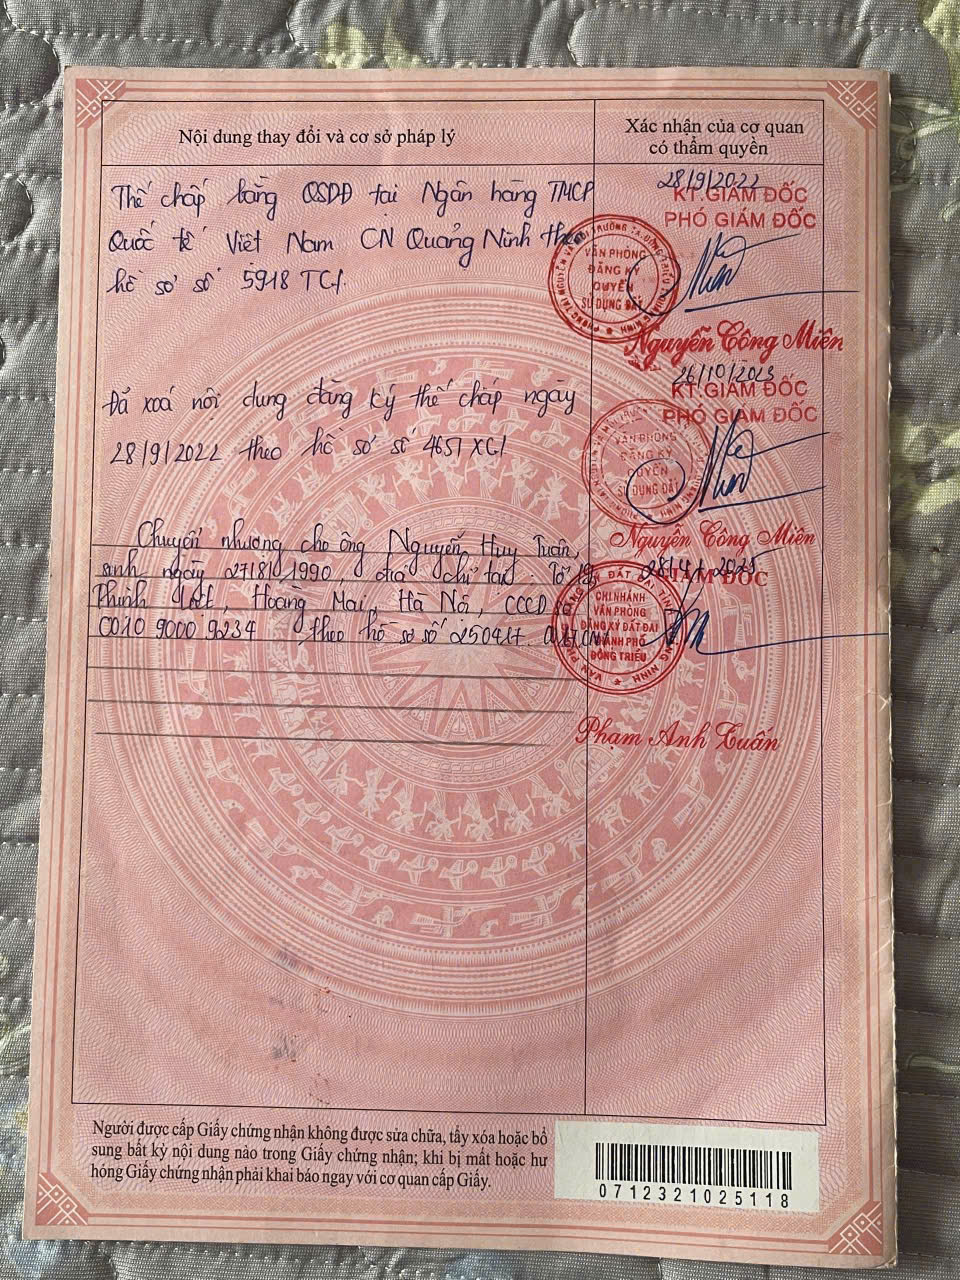 Nội dung thay đổi và cơ sở pháp lý
Xác nhận của cơ quan
có thẩm quyền
Thế chấp bằng QSDĐ tại Ngân hàng TMCP
Quốc tế Việt Nam CN Quảng Ninh theo
hồ sơ số 5918 TC/.
28/9/2022
KT.GIÁM ĐỐC
PHÓ GIÁM ĐỐC
VĂN PHÒNG
ĐĂNG KÝ
QUYỀN
SỬ DỤNG ĐẤT
Nguyễn Công Miên
Đã xoá nội dung đăng ký thế chấp ngày
28/9/2022 theo hồ sơ số 4651 XC/.
26/10/2023
KT.GIÁM ĐỐC
PHÓ GIÁM ĐỐC
VĂN PHÒNG
ĐĂNG KÝ
QUYỀN
SỬ DỤNG ĐẤT
Nguyễn Công Miên
Chuyển nhượng cho ông Nguyễn Huy Tuân,
sinh ngày 27/8/1990, địa chỉ tại: Tổ
Thịnh Liệt, Hoàng Mai, Hà Nội, CCCD
theo hồ sơ số
GIÁM ĐỐC
CHI NHÁNH
VĂN PHÒNG
ĐĂNG KÝ ĐẤT ĐAI
THÀNH PHỐ
ĐÔNG TRIỀU
Phạm Anh Tuấn
Người được cấp Giấy chứng nhận không được sửa chữa, tẩy xóa hoặc bổ
sung bất kỳ nội dung nào trong Giấy chứng nhận; khi bị mất hoặc hư
hỏng Giấy chứng nhận phải khai báo ngay với cơ quan cấp Giấy.
0712321025118